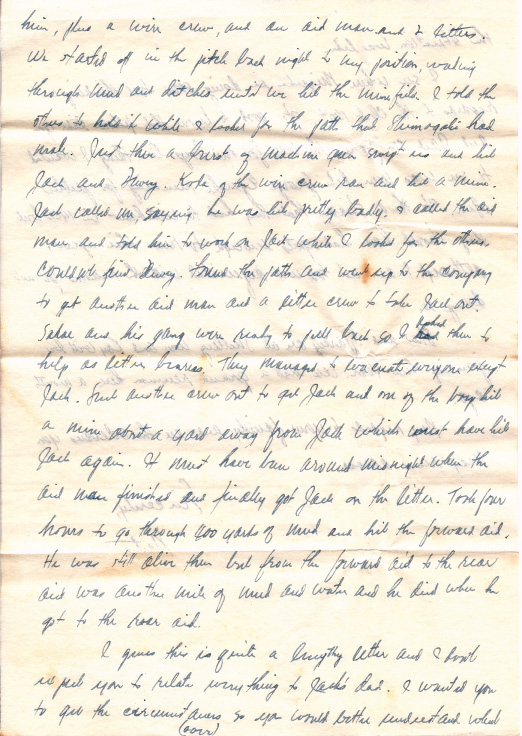 him, plus a wire crew, and an aid man and 2 litters.
We started off in the pitch back night to my position, wading
through mud and ditches until we hit the minefield. I told the
others to hold it while I looked for the path that Shimogaki had
made. Just then a burst of machine gun swept us and hit
Jack and Huvey. Kobe of the wire crew ran and hit a mine.
Jack called me, saying he was hit pretty badly. I called the aid
man and told him to work on Jack while I looked for the others.
Couldn't find Huvey. Found the path and went up to the company
to get another aid man and a litter crew to take Jack out.
Sakae and his gang were ready to pull back so I asked them to
help as litter bearers. They managed to evacuate everyone except
Jack. Sent another crew out to get Jack and one of the boys hit
a mine about a yard away from Jack which must have hit
Jack again. It must have been around midnight when the
aid man finished and finally got Jack on the litter. Took four
hours to go through 400 yards of mud and hit the forward aid.
He was still alive then but from the forward aid to the rear
aid was another mile of mud and water and he died when he
got to the rear aid.
I guess this is quite a lengthy letter and I don't
expect you to relate everything to Jack's dad. I wanted you
to get the circumstances so you would better understand what
(over)